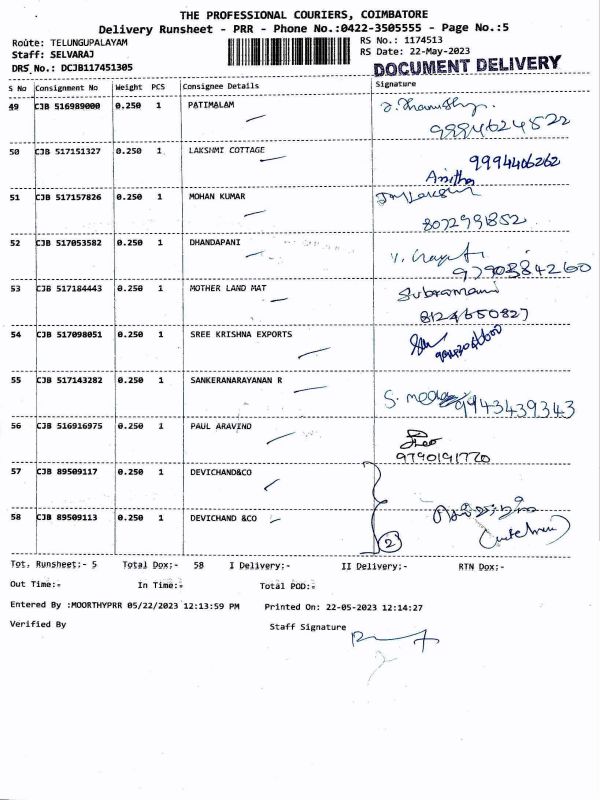 THE PROFESSIONAL COURIERS, COIMBATORE
Delivery Runsheet - PRR - Phone No.:0422-3505555 - Page No.:5
Route: TELUNGUPALAYAM RS No.: 1174513
Staff: SELVARAJ RS Date: 22-May-2023
DRS No.: DCJB117451305 DOCUMENT DELIVERY
S No Consignment No Weight PCS Consignee Details Signature
49 CJB 516989000 0.250 1 PATIMALAM
9994624522
50 CJB 517151327 0.250 1 LAKSHMI COTTAGE 9994406262
Anitha
51 CJB 517157826 0.250 1 MOHAN KUMAR
8072991852
52 CJB 517053582 0.250 1 DHANDAPANI
9790384260
53 CJB 517184443 0.250 1 MOTHER LAND MAT Subramani
8124650827
54 CJB 517098051 0.250 1 SREE KRISHNA EXPORTS
55 CJB 517143282 0.250 1 SANKERANARAYANAN R
9943439343
56 CJB 516916975 0.250 1 PAUL ARAVIND
9790191770
57 CJB 89509117 0.250 1 DEVICHAND&CO
58 CJB 89509113 0.250 1 DEVICHAND &CO
2
Tot. Runsheet:- 5 Total Dox:- 58 I Delivery:- II Delivery:- RTN Dox:-
Out Time:- In Time:- Total POD:-
Entered By :MOORTHYPRR 05/22/2023 12:13:59 PM Printed On: 22-05-2023 12:14:27
Verified By Staff Signature